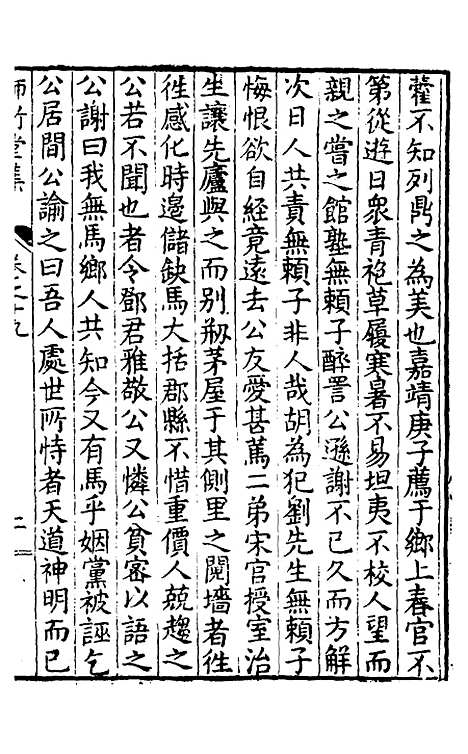 藿不知列鼎之為美也嘉靖庚子薦于鄉上春官不
第從遊日衆青袍草履寒暑不易坦夷不校人望而
親之嘗之館塾無賴子醉詈公遜謝不已久而方解
次日人共責無賴子非人哉胡為犯劉先生無賴子
悔恨欲自經竟遠去公友愛甚篤二弟宋官授室治
生讓先廬與之而别剏茅屋于其側里之鬩墻者徃
徃感化時邉儲缺馬大括郡縣不惜重價人競趨之
公若不聞也者令鄧君雅敬公又憐公貧密以語之
公謝曰我無馬鄉人共知今又有馬乎姻黨被誣乞
公居間公諭之曰吾人處世所恃者天道神明而已
師竹堂集
卷之十九
二